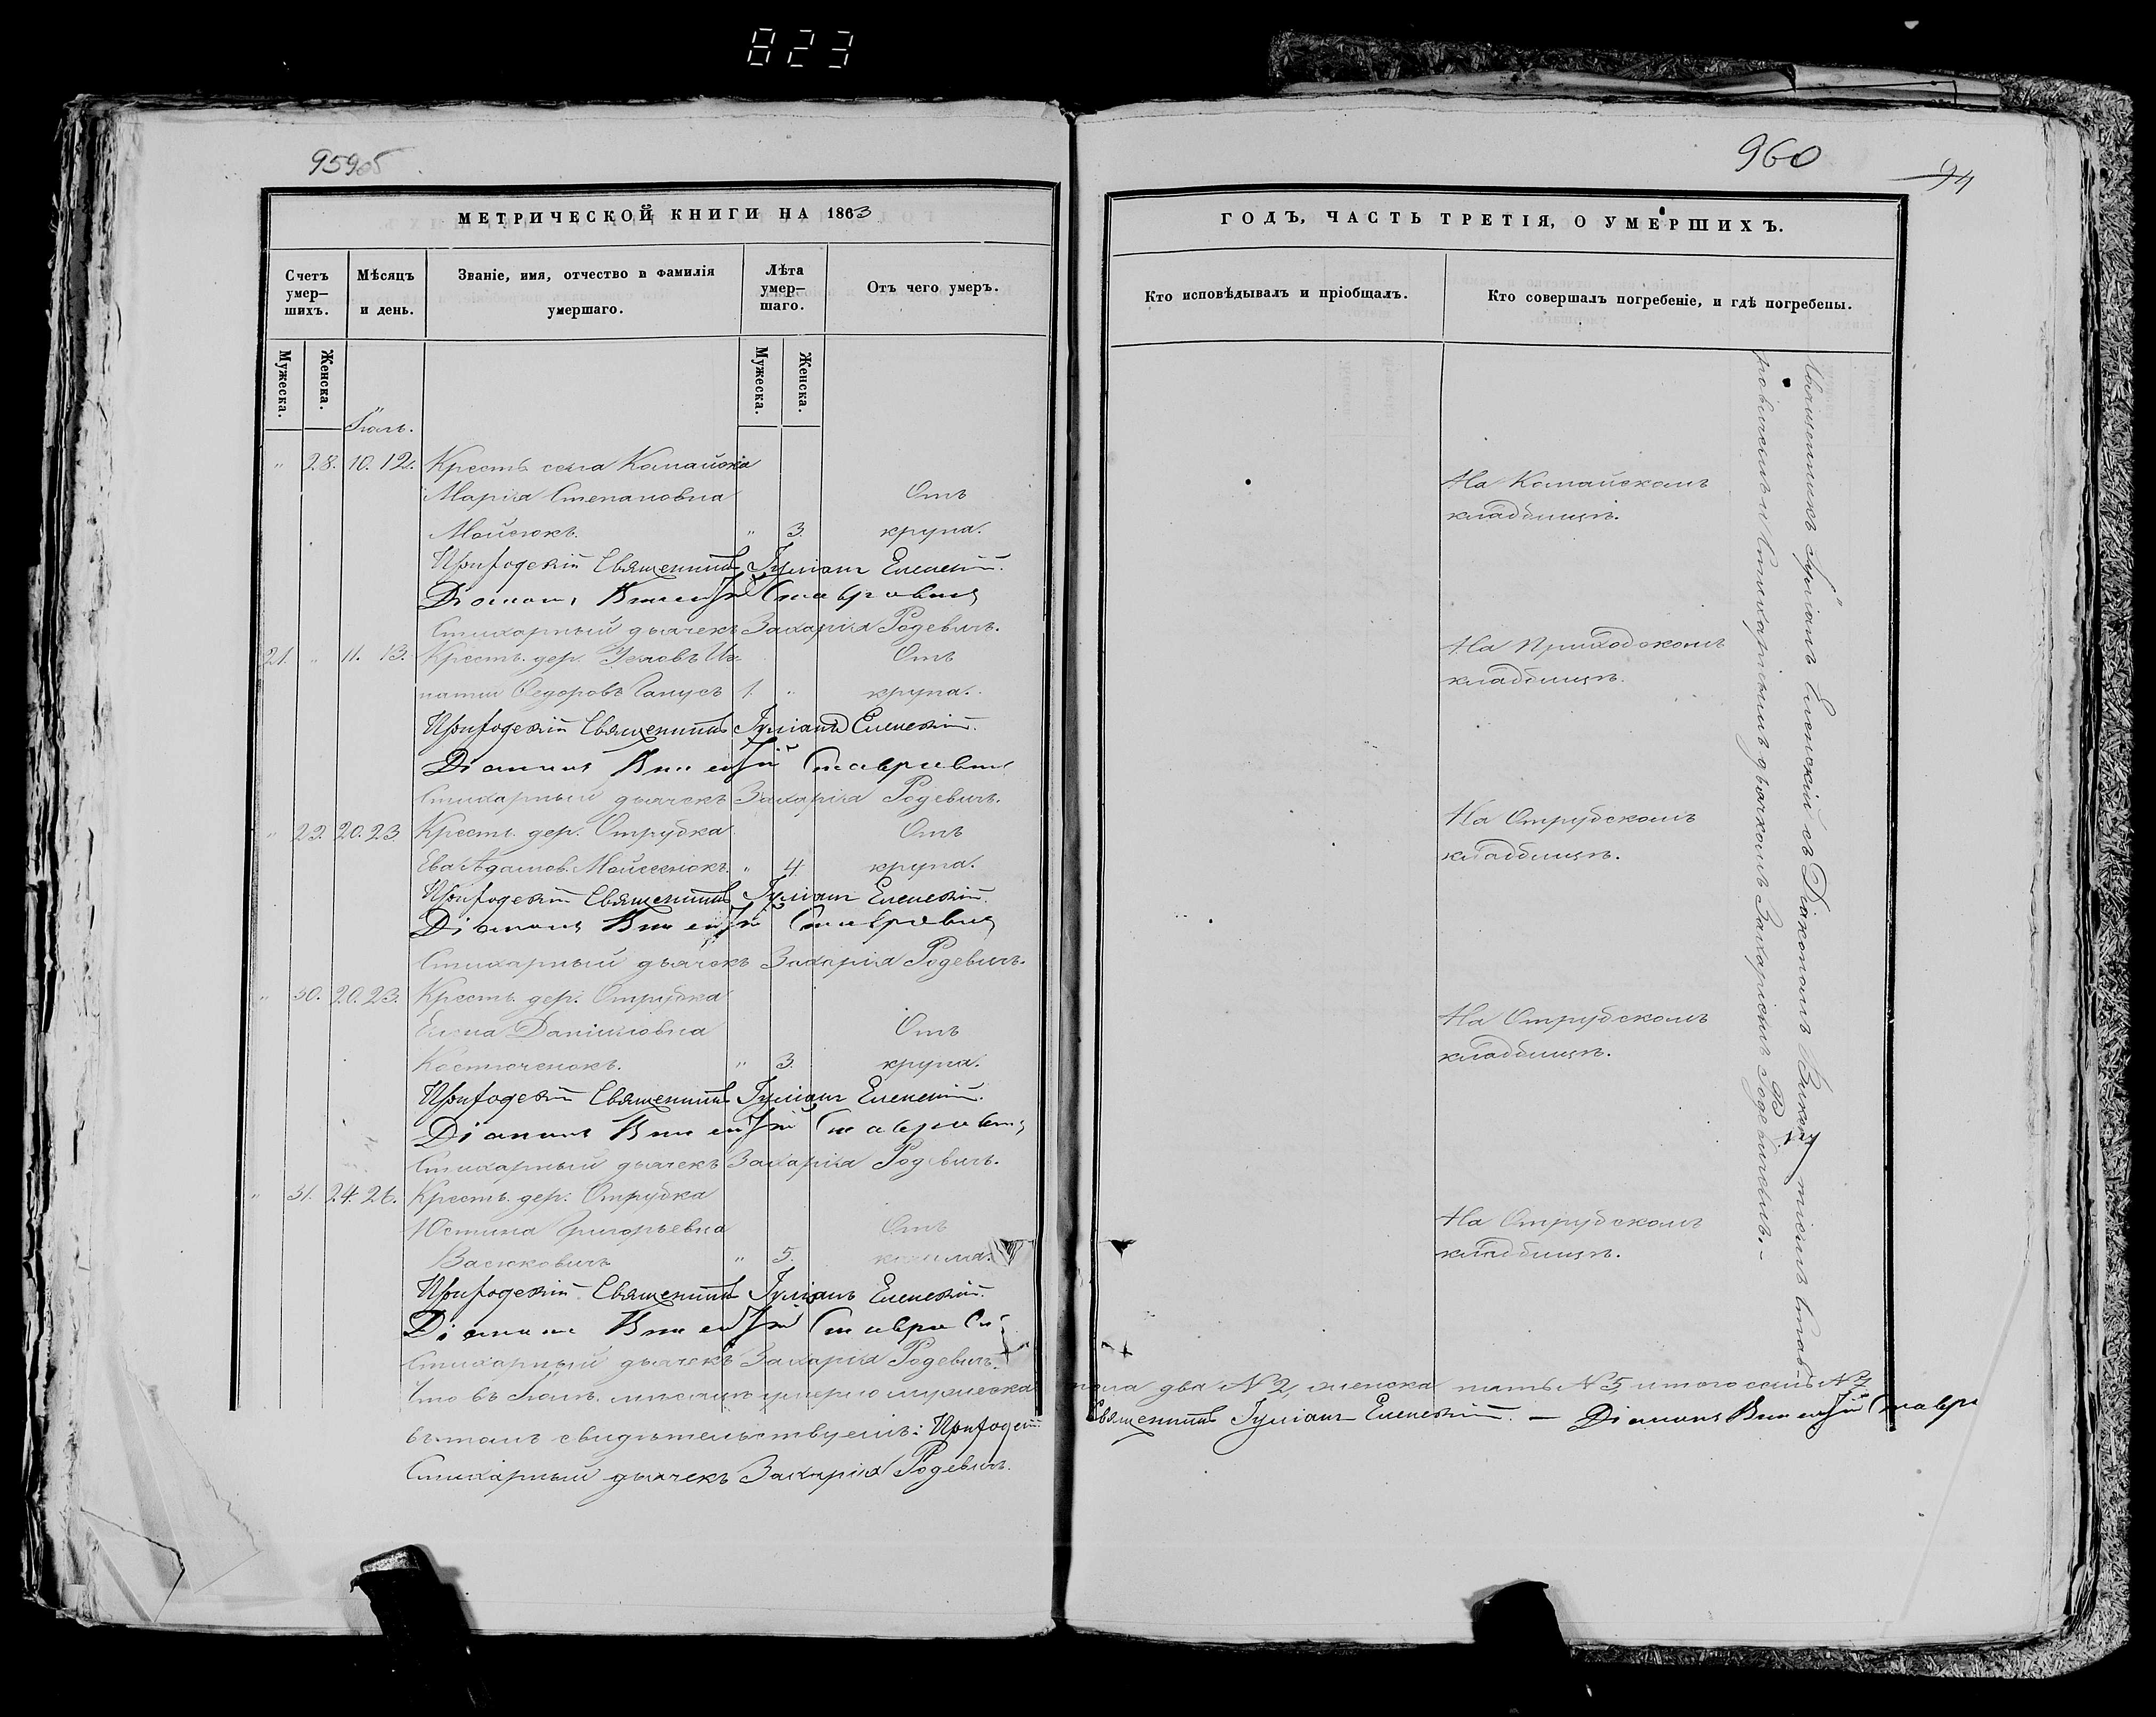 823
959об
МЕТРИЧЕСКОЙ КНИГИ НА 1863
Счетъ умер–шихъ.
Мѣсяцъ и день.
Званіе, имя, отчество и фамилія умершаго.
Лѣта умер–шаго.
Отъ чего умеръ.
Мужеска.
Женска.
Мужеска.
Женска.
Іюль.
" 28. 10. 12. Крестъ. села
Марія Степановна Отъ
Мойсюкъ. " 3. крупа.
Приходскій Священникъ Іуліанъ Еленскій.
Діаконъ Викентій Ставровичъ
Стихарный дьячекъ Захарія Родевичъ.
21. " 11. 13. Крестъ. дер. Иг- Отъ
натій Ѳедоровъ 1. " крупа.
Приходскій Священникъ Іуліанъ Еленскій.
Діаконъ Викентій Ставровичъ
Стихарный дьячекъ Захарія Родевичъ.
" 29. 20. 23. Крестъ. дер. Отрубка Отъ
Ева Адамов. Мойсеюкъ. " 4. крупа.
Приходскій Священникъ Іуліанъ Еленскій.
Діаконъ Викентій Ставровичъ
Стихарный дьячекъ Захарія Родевичъ.
" 30. 20. 23. Крестъ. дер. Отрубка
Елена Даниловна Отъ
Костюченокъ. " 3. крупа.
Приходскій Священникъ Іуліанъ Еленскій.
Діаконъ Викентій Ставровичъ
Стихарный дьячекъ Захарія Родевичъ.
" 31. 24. 26. Крестъ. дер. Отрубка
Юстина Григорьевна Отъ
Васюковичъ " 5.
Приходскій Священникъ Іуліанъ Еленскій.
Діаконъ Викентій
Стихарный дьячекъ Захарія Родевичъ.
Что въ Іюлѣ мѣсяцѣ умерло мужеска
въ томъ свидѣтельствуемъ: Приходскій
Стихарный дьячекъ Захарія Родевичъ.
960
94
ГОДЪ, ЧАСТЬ ТРЕТІЯ, О УМЕРШИХЪ.
Кто исповѣдывалъ и пріобщалъ.
Кто совершалъ погребеніе, и гдѣ погребены.
На
кладбищѣ.
На Приходскомъ
кладбищѣ.
На Отрубскомъ
кладбищѣ.
На Отрубскомъ
кладбищѣ.
На Отрубскомъ
кладбищѣ.
Священникъ Іуліанъ Еленскій съ Діакономъ Викентіемъ Став
ровичемъ и Стихарнымъ дьячкомъ Захаріемъ Родевичемъ.–
пола два N 2, женска пять N 5, итого семь N 7,
Священникъ Іуліанъ Еленскій. — Діаконъ Викентій Ставро